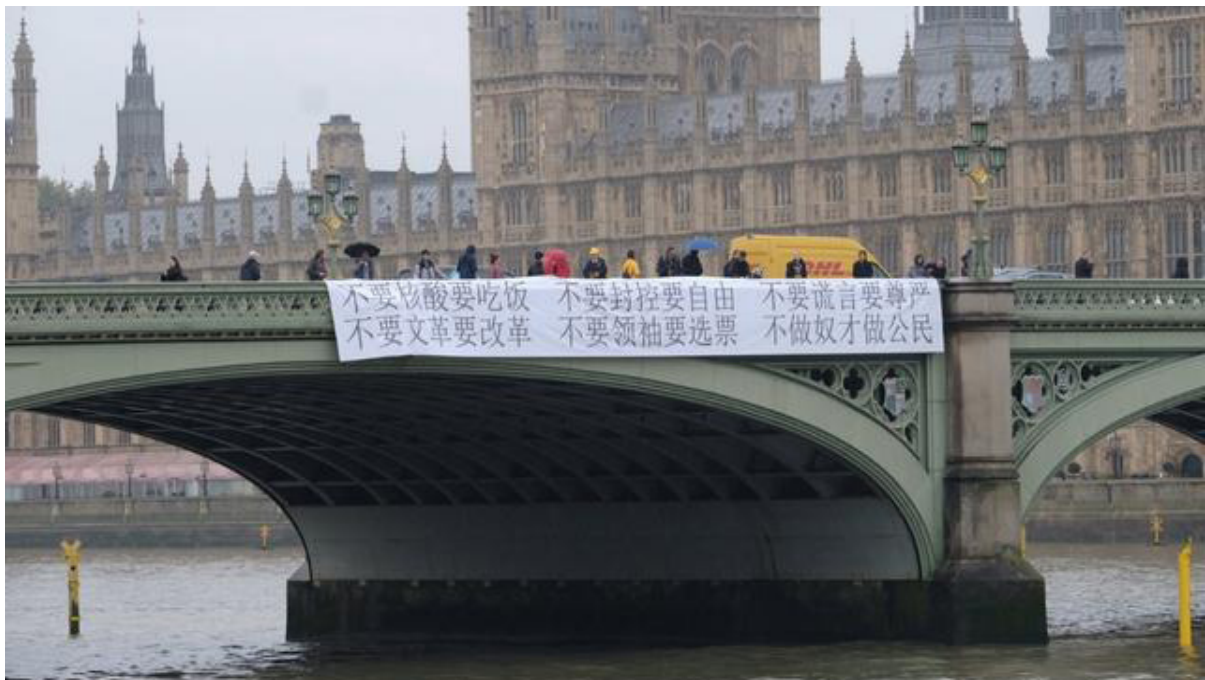 不要核酸要吃饭 不要封控要自由 不要谎言要尊严
不要文革要改革 不要领袖要选票 不做奴才做公民
DHL